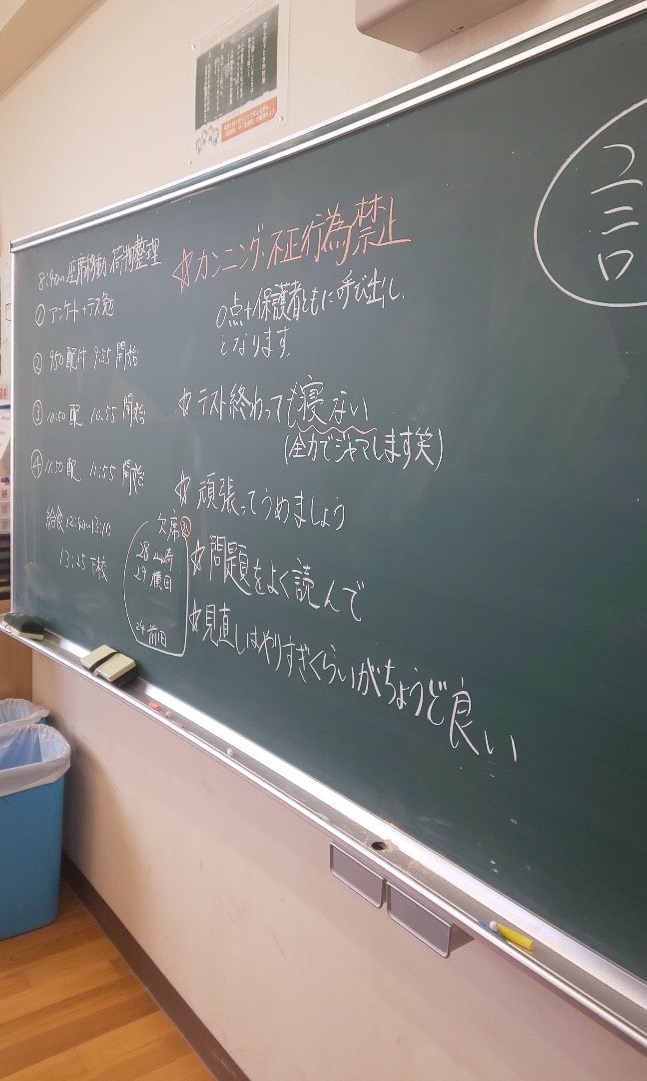 8:40〜座席移動 荷物整理
① アンケート+テス勉
② 9:50 配付 9:55 開始
③ 10:50 配 10:55 開始
④ 11:50 配 11:55 開始
給食 12:50〜13:10
13:25 下校
欠席
28 山崎
29 廣田
24 前田
☆カンニング・不正行為禁止
0点+保護者ともに呼び出し
となります。
☆テスト終わっても寝ない
(全力でジャマします笑)
☆頑張ってうめましょう
☆問題をよく読んで
☆見直しはやりすぎくらいがちょうど良い